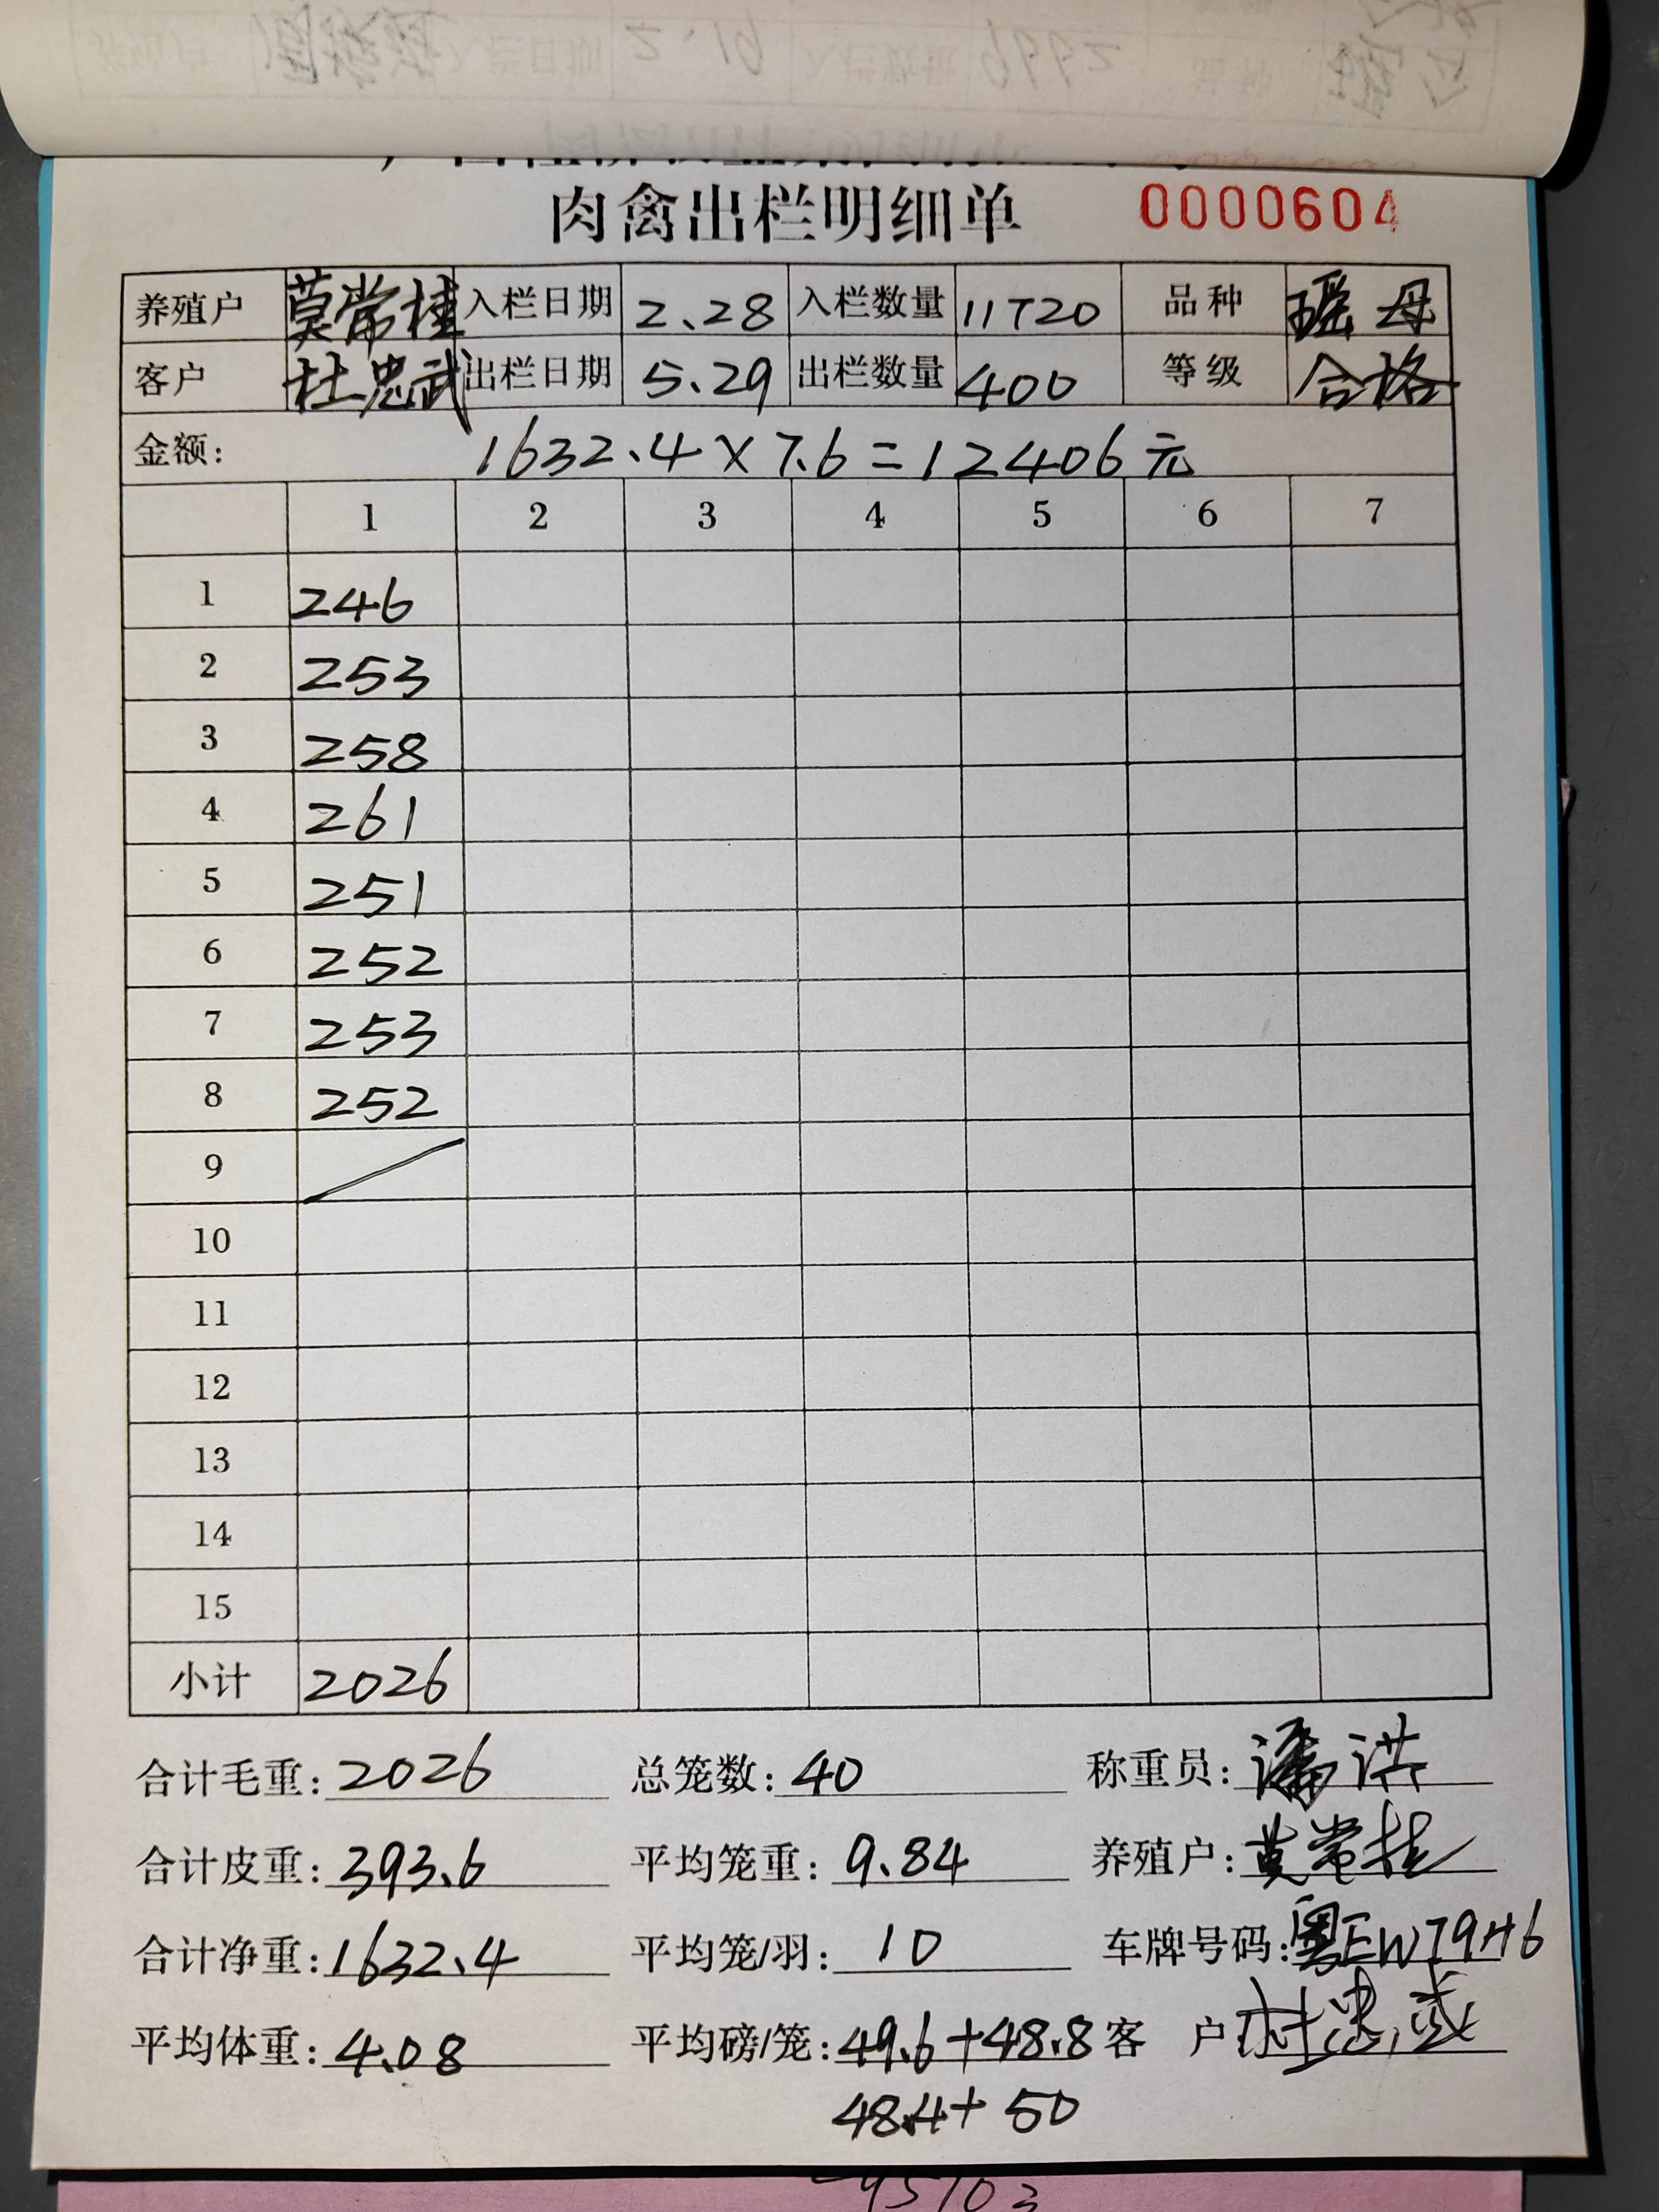 肉禽出栏明细单 0000604
养殖户 莫常桂 入栏日期 2.28 入栏数量 11720 品种 瑶母
客户 杜忠武 出栏日期 5.29 出栏数量 400 等级 合格
金额: 1632.4×7.6=12406元
1 2 3 4 5 6 7
1 246
2 253
3 258
4 261
5 251
6 252
7 253
8 252
9 /
10
11
12
13
14
15
小计 2026
合计毛重: 2026 总笼数: 40 称重员: 潘洪
合计皮重: 393.6 平均笼重: 9.84 养殖户: 莫常桂
合计净重: 1632.4 平均笼/羽: 10 车牌号码: 粤EW79H6
平均体重: 4.08 平均磅/笼: 49.6+48.8 客 户 杜忠武
48.4+50